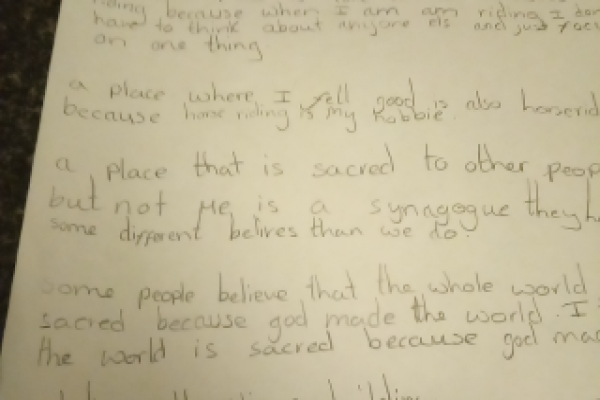 riding because when I am am riding I don
have to think about anyone els and just focu
on one thing
a place where I fell good is also horserid
because horse riding is my hobbie.
a place that is sacred to other peop
but not me is a synagogue they h
some different belives than we do.
some people believe that the whole world
sacred because god made the world. I
the world is sacred because god mad